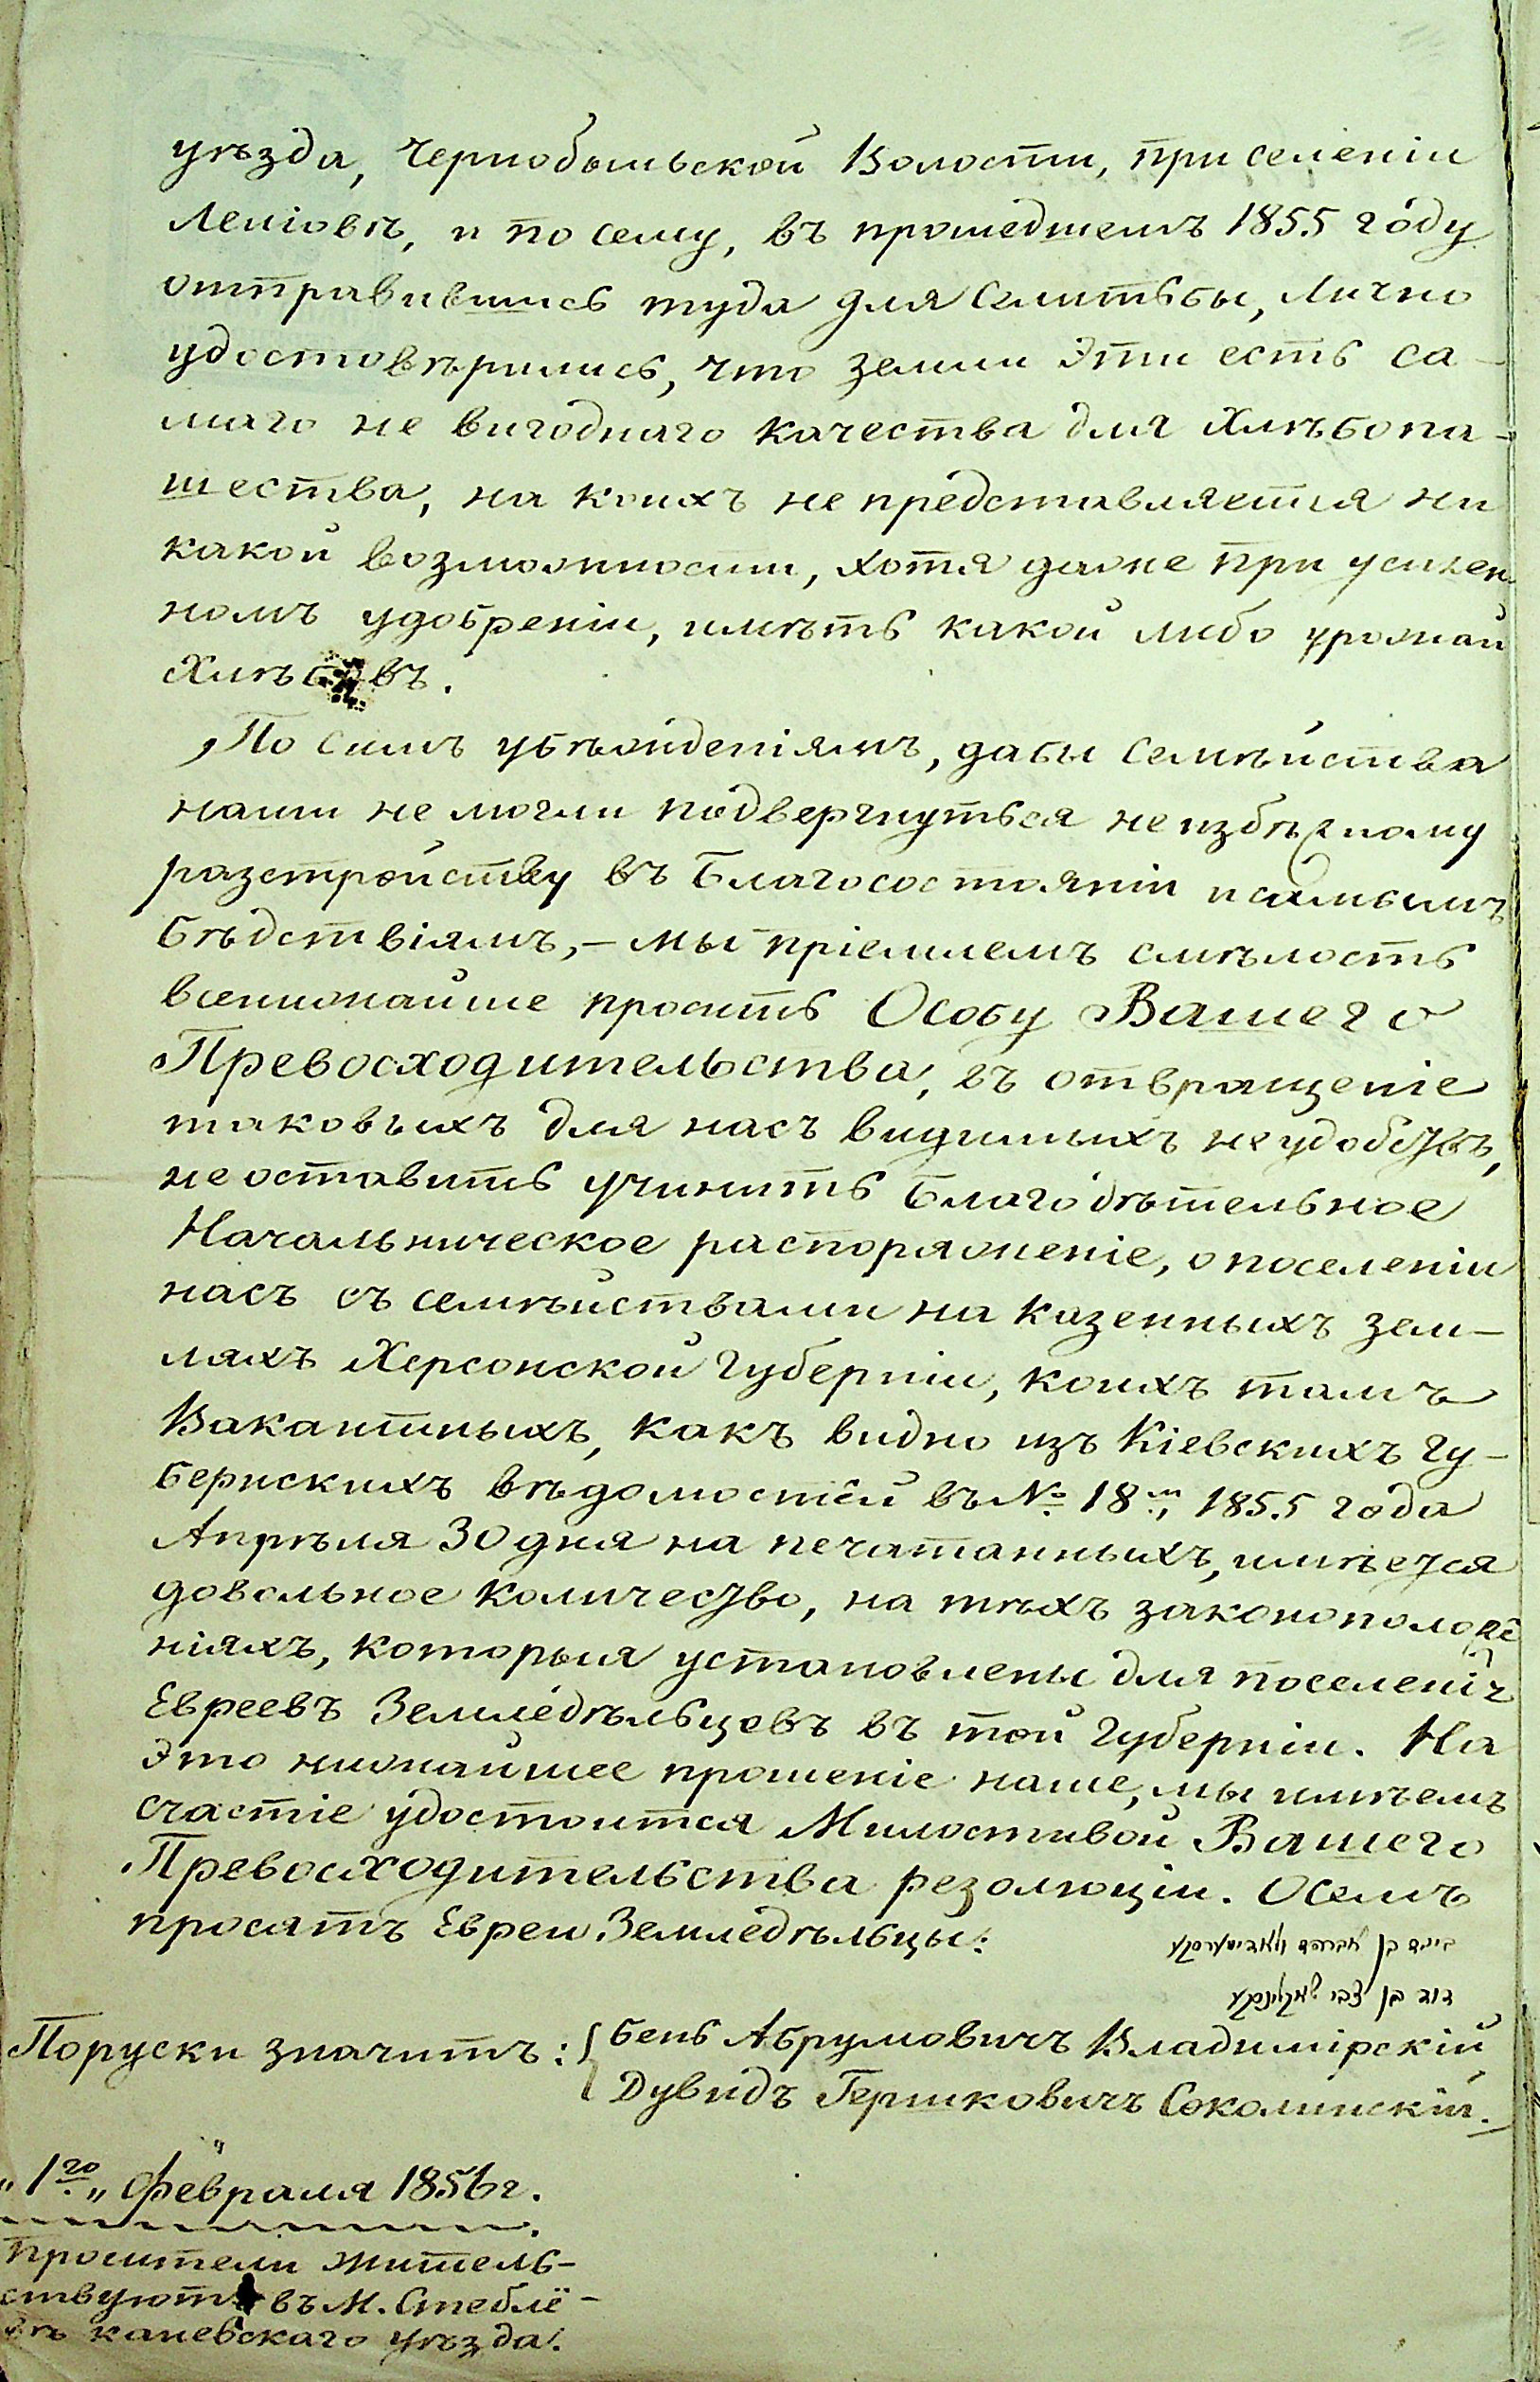 уѣзда, Чернобыльской Волости, при селеніи
Лемговѣ, и по сему, въ прошедшемъ 1855 году
отправившись туда для Селитьбы, Лично
удостовѣрились, что земли Эти есть са-
маго не вигоднаго качества для Хлѣбопа-
шества, на коихъ не представляется ни
какой возможности, хотя даже при усилен
номъ удобреніи, имѣть какой либо урожай
Хлѣбовъ.
По симъ убѣжденіямъ, дабы Семѣйства
наши не могли подвергнуться неизбѣжному
разстройству въ Благосостояніи и самымъ
бѣдствіямъ,- мы пріемлемъ смѣлость
всенижайше просить Особу Вашего
Превосходительства, въ отвращеніе
таковыхъ для насъ видимыхъ неудобствъ,
не оставить учинить Благодѣтельное
Начальническое распоряженіе, о поселеніи
насъ съ семѣйствами на казенныхъ зем-
ляхъ Херсонской Губерніи, коихъ тамъ
Вакантныхъ, какъ видно изъ Кіевскихъ Гу-
бернскихъ вѣдомостей въ № 18м, 1855 года
Апрѣля 30 дня на печатанныхъ, имѣется
довольное количество, на тѣхъ законоположе
ніяхъ, которыя установлены для поселенія
Евреевъ Земледѣльцевъ въ той Губерніи. На
Это нижайшее прошеніе наше, мы имѣемъ
счастіе удостоится Милостивой Вашего
Превосходительства резолюціи. Осемъ
просятъ Евреи Земледѣльцы:
בן אברהם
דוד בן צבי
Поруски значитъ: { Бень Абрумовичъ Владимірскій
Дувидъ Гершковичъ Соколинскій.
„1го„ Февраля 1856 г.
Просители житель-
ствуютъ въ М. Стеблё-
вѣ каневскаго уѣзда.